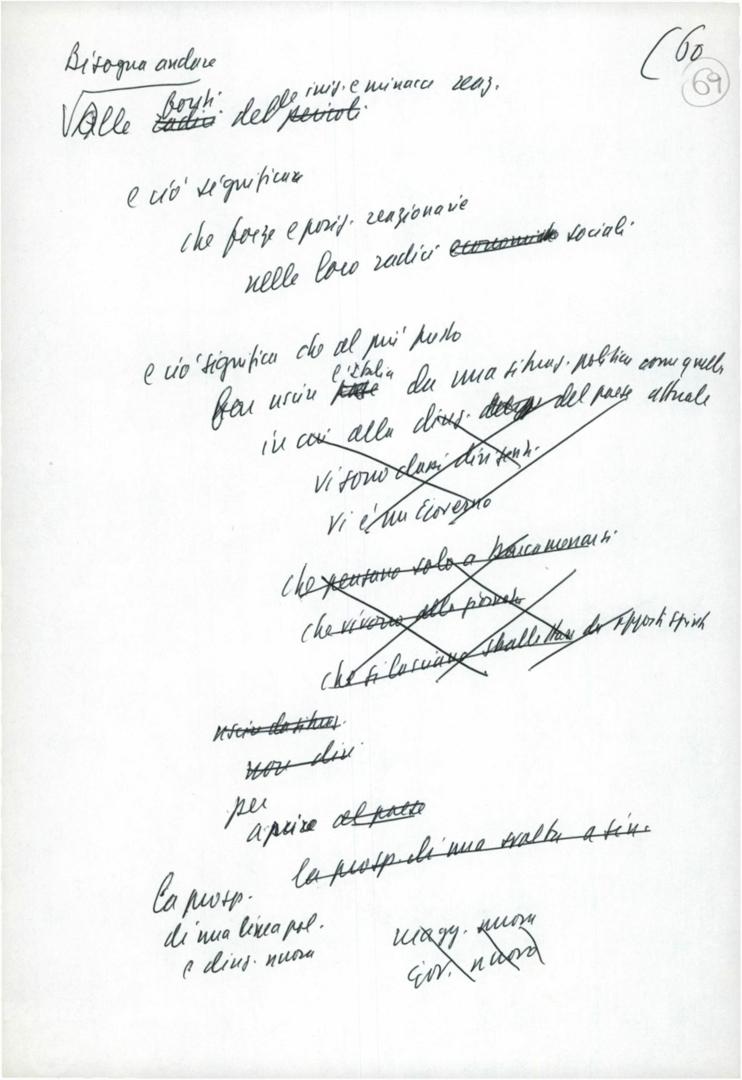 (60
69
Bisogna andare
fonti iniz. e minacce reaz.
Alle radici delle pericoli
e ciò significa
che forze e posiz. reazionarie
nelle loro radici economiche sociali
e ciò significa che al più presto
l'Italia
far uscire paese da una situaz. politica come quella
in cui alla direz. del paese attuale
vi sono clani dirigenti
vi è un Governo
che pensano solo a barcamenarsi
che vivono alla giornata
che si lasciano sballottare da opposti
uscire da situaz.
non dire
per
aprire al paese
la prosp. di una svolta a sin.
La prosp.
di una linea pol.
e direz. nuova
magg. nuova
Gov. nuovo